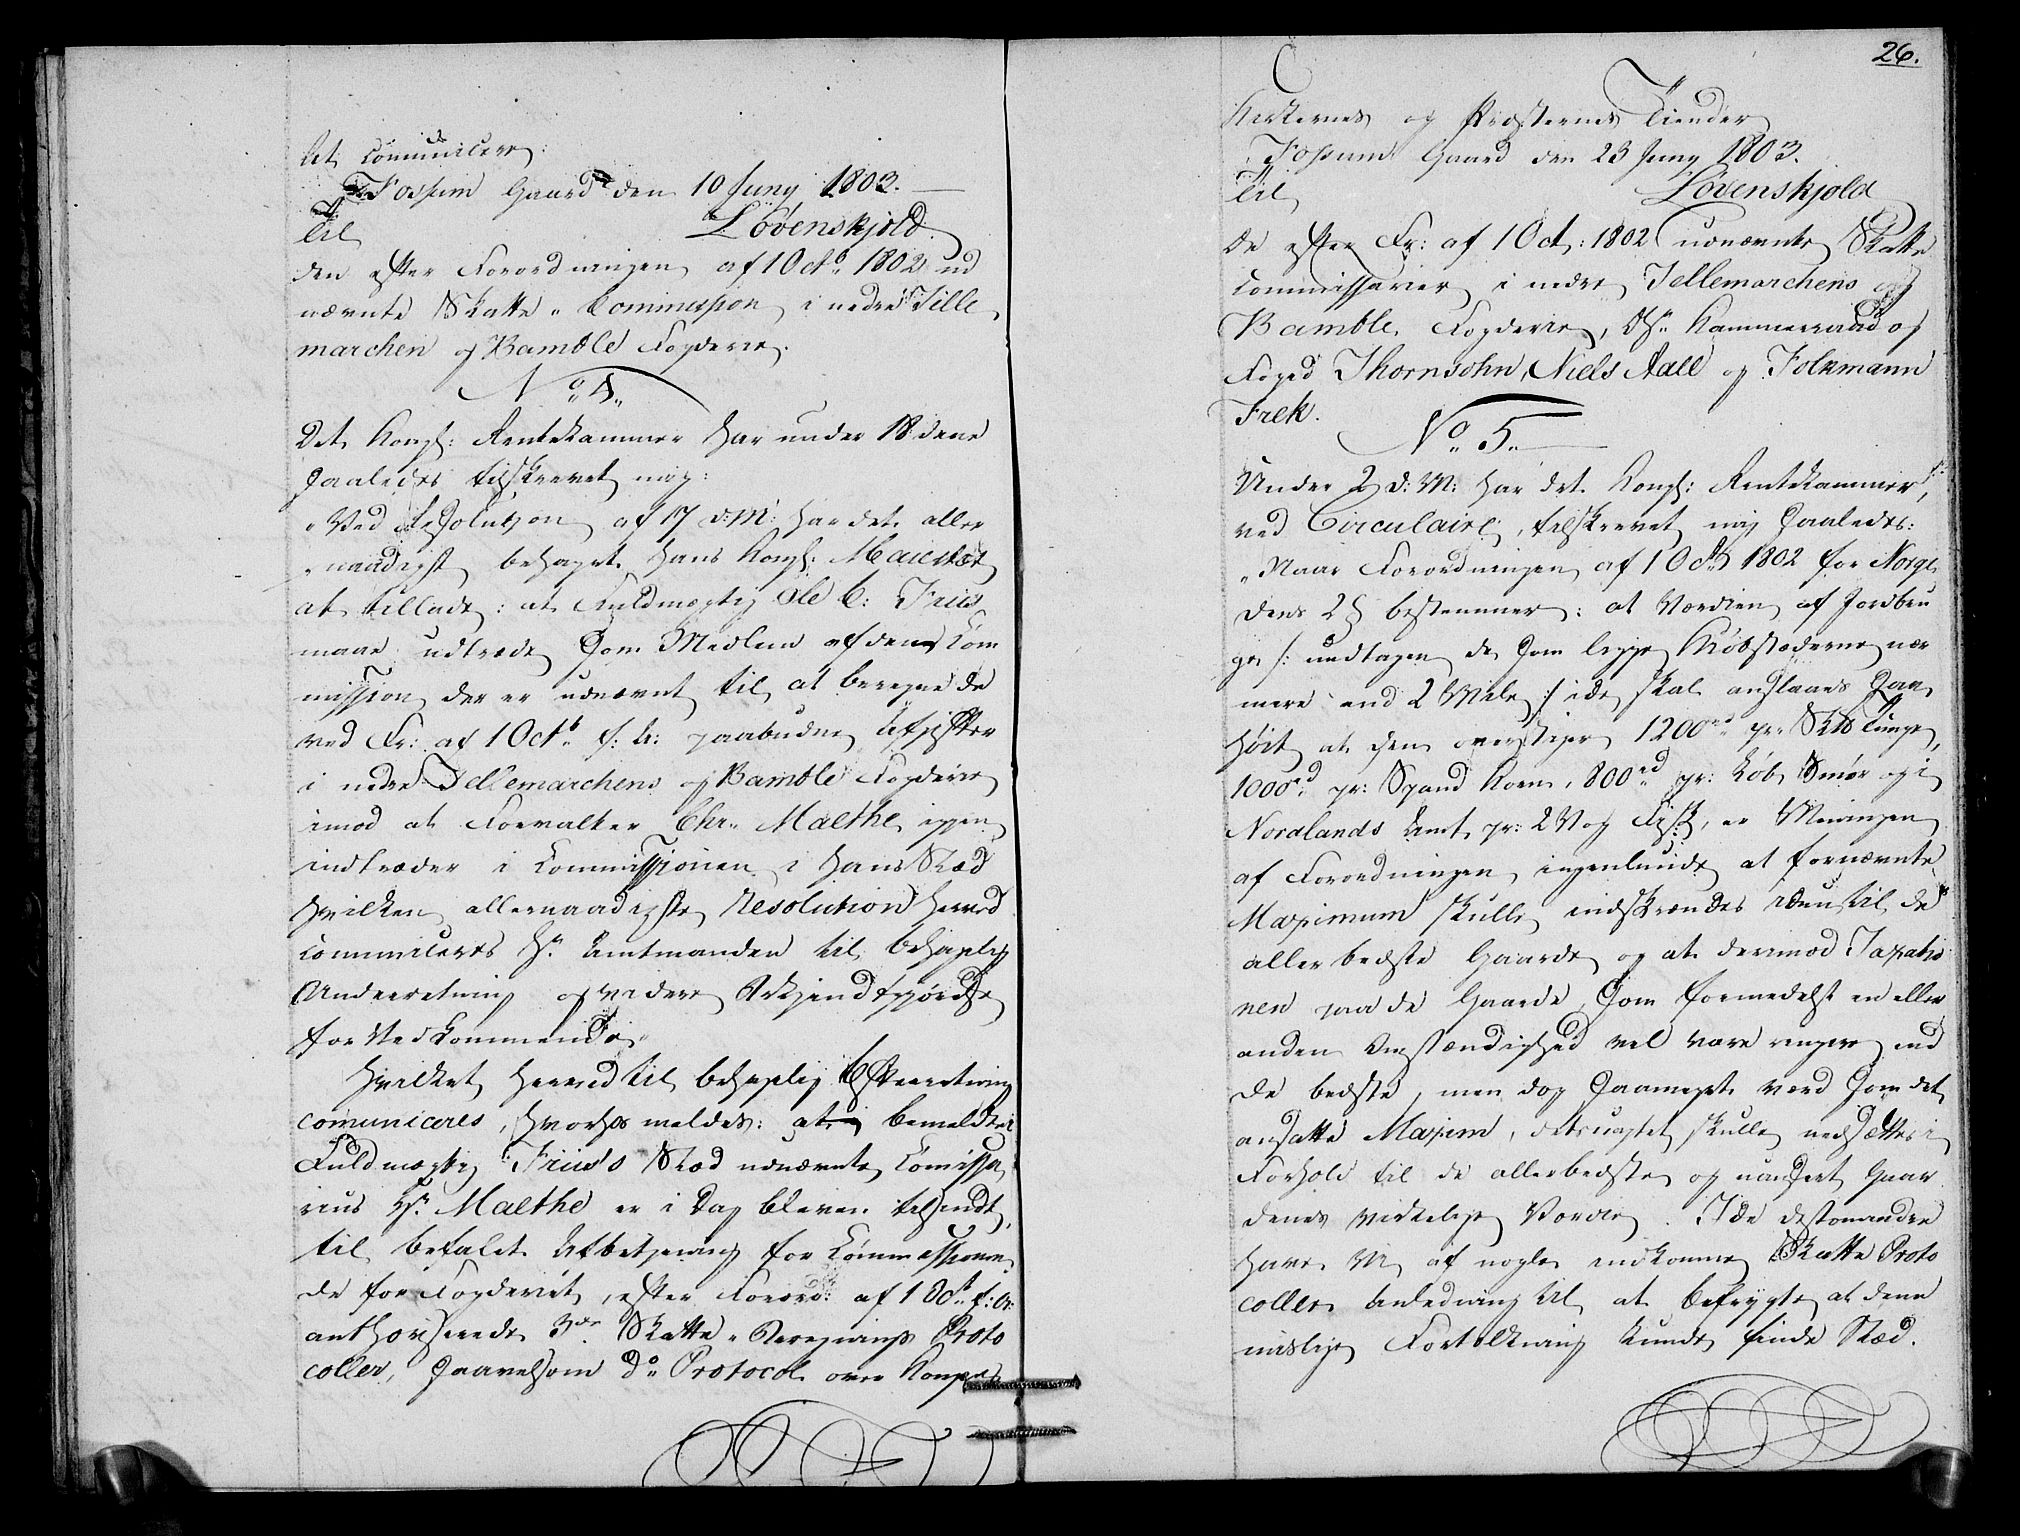 let Comunicere:
Fossum Gaard den 10 Juny 1803.
Til
Løvenskjold.
den efter Forordningen af 1 Octb. 1802 ud
nævnte Skatte-Commission i nedre Tille
marchen og Bamble Fogderie.
No 4.
Det Kongl: Rentekammer har under 18 dene
saaledes tilskrevet mig:
"Ved Resolution af 17 d: M: har det aller
"naadigst behaget Hans Kongl: Maiestæt
at tillade: at Fuldmægtig Ole C: Friis
maae udtræde som Medlem af den Com
mission der er udnævnt til at beregne de
ved Fr: af 1 Octb. f: A: paabudne Afgifter
i nedre Tellemarchens og Bamble Fogderie
imod at Forvalter Chr. Maethe igjen
indtræder i Commissionen i hans Stæd
hvilken allernaadigste Resolution herved
communiceres Hr. Amtmanden til behagelig
Underretning og videre Bekjendtgjørelse
for Vedkommende."
Hvilket herved til behagelig Efterretning
comuniceres, hvorhos meldes: at bemeldte
Fuldmægtig Friis's Stæd udnævnte Comissa
rius Hr. Maethe er i Dag bleven tilsendt
til befalet Afbetjening for Commissionen
de for Fogderiet, efter Forord: af 1 Octb. f: A:
authoriserede 3de Skatte-Beregnings Proto
coller, saavelsom Do Protocol over Konge
26.
Kirkernes og Præsternes Tiender
Fossum Gaard den 23 Juny 1803.
Til
Løvenskjold
de efter Fr: af 1 Oct: 1802 udnævnte Skatte
Commissairer i nedre Tellemarchens og
Bamble Fogderie, Hr. Kammerraad og
Foged Thornsohn, Niels Aall og Folkmann
Frek.
No 5.
Under 2 d: M: har det Kongl: Rentekammer,
ved Circulaire, tilskrevet mig saaledes:
"Naar Forordningen af 1 Octb 1802 for Norge
dens 2 § bestemmer: at Værdien af Jordbru
get /: undtagen de som ligge Kiøbstæderne nær
mere end 2 Mile :/ ide skal anslaaes saa
høit at den overstiger 1200rd pr. Skb Tunge,
1000rd pr: Spand Korn, 800rd pr: Løb Smør og i
Nordlands Amt pr: 2 Vog Fisk, er Meningen
af Forordningen ingenlunde at fornævnte
Maximum skulle indskrændes eene til de
allerbedste Gaarde og at derimod Taxatio
nen paa de Gaarde, som formedelst en eller
anden Omstændighed vel vare ringere end
de bedste, men dog saameget værd som det
ansatte Maxim, desuagtet skulle nedsættes i
Forhold til de allerbedste og uanseet Gaar
denes virkelige Værdie. Ide destomindre
have Vi af nogle indkomne Skatte Proto
coller Anledning til at befrygte at denne
mislige Fortolkning kunde finde Stæd.